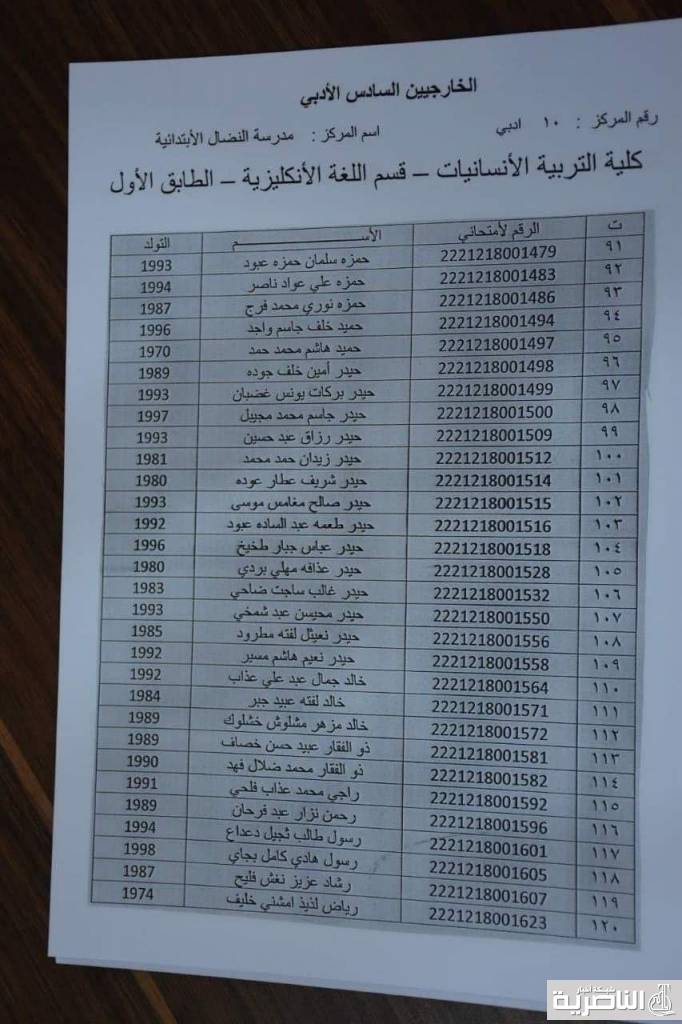 الخارجيين السادس الأدبي
رقم المركز : ١٠ ادبي اسم المركز : مدرسة النضال الأبتدائية
كلية التربية الأنسانيات – قسم اللغة الأنكليزية – الطابق الأول
ت الرقم لأمتحاني الأســــم التولد
٩١ 2221218001479 حمزه سلمان حمزه عبود 1993
٩٢ 2221218001483 حمزه علي عواد ناصر 1994
٩٣ 2221218001486 حمزه نوري محمد فرج 1987
٩٤ 2221218001494 حميد خلف جاسم واجد 1996
٩٥ 2221218001497 حميد هاشم محمد حمد 1970
٩٦ 2221218001498 حيدر أمين خلف جوده 1989
٩٧ 2221218001499 حيدر بركات يونس غضبان 1993
٩٨ 2221218001500 حيدر جاسم محمد مجيبل 1997
٩٩ 2221218001509 حيدر رزاق عبد حسين 1993
١٠٠ 2221218001512 حيدر زيدان حمد محمد 1981
١٠١ 2221218001514 حيدر شريف عطار عوده 1980
١٠٢ 2221218001515 حيدر صالح مغامس موسى 1993
١٠٣ 2221218001516 حيدر طعمه عبد الساده عبود 1992
١٠٤ 2221218001518 حيدر عباس جبار طخيخ 1996
١٠٥ 2221218001528 حيدر عذافه مهلي بردي 1980
١٠٦ 2221218001532 حيدر غالب ساجت ضاحي 1983
١٠٧ 2221218001550 حيدر محيسن عبد شمخي 1993
١٠٨ 2221218001556 حيدر نعيثل لفته مطرود 1985
١٠٩ 2221218001558 حيدر نعيم هاشم مسير 1992
١١٠ 2221218001564 خالد جمال عبد علي عذاب 1992
١١١ 2221218001571 خالد لفته عبيد جبر 1984
١١٢ 2221218001572 خالد مزهر مشلوش خشلوك 1989
١١٣ 2221218001581 ذو الفقار عبيد حسن خصاف 1989
١١٤ 2221218001582 ذو الفقار محمد ضلال فهد 1990
١١٥ 2221218001592 راجي محمد عذاب فلحي 1991
١١٦ 2221218001596 رحمن نزار عبد فرحان 1989
١١٧ 2221218001601 رسول طالب ثجيل دعداع 1994
١١٨ 2221218001605 رسول هادي كامل بجاي 1998
١١٩ 2221218001607 رشاد عزيز نغش فليح 1987
١٢٠ 2221218001623 رياض لذيذ امشني خليف 1974
شبكة أخبار
الناصرية